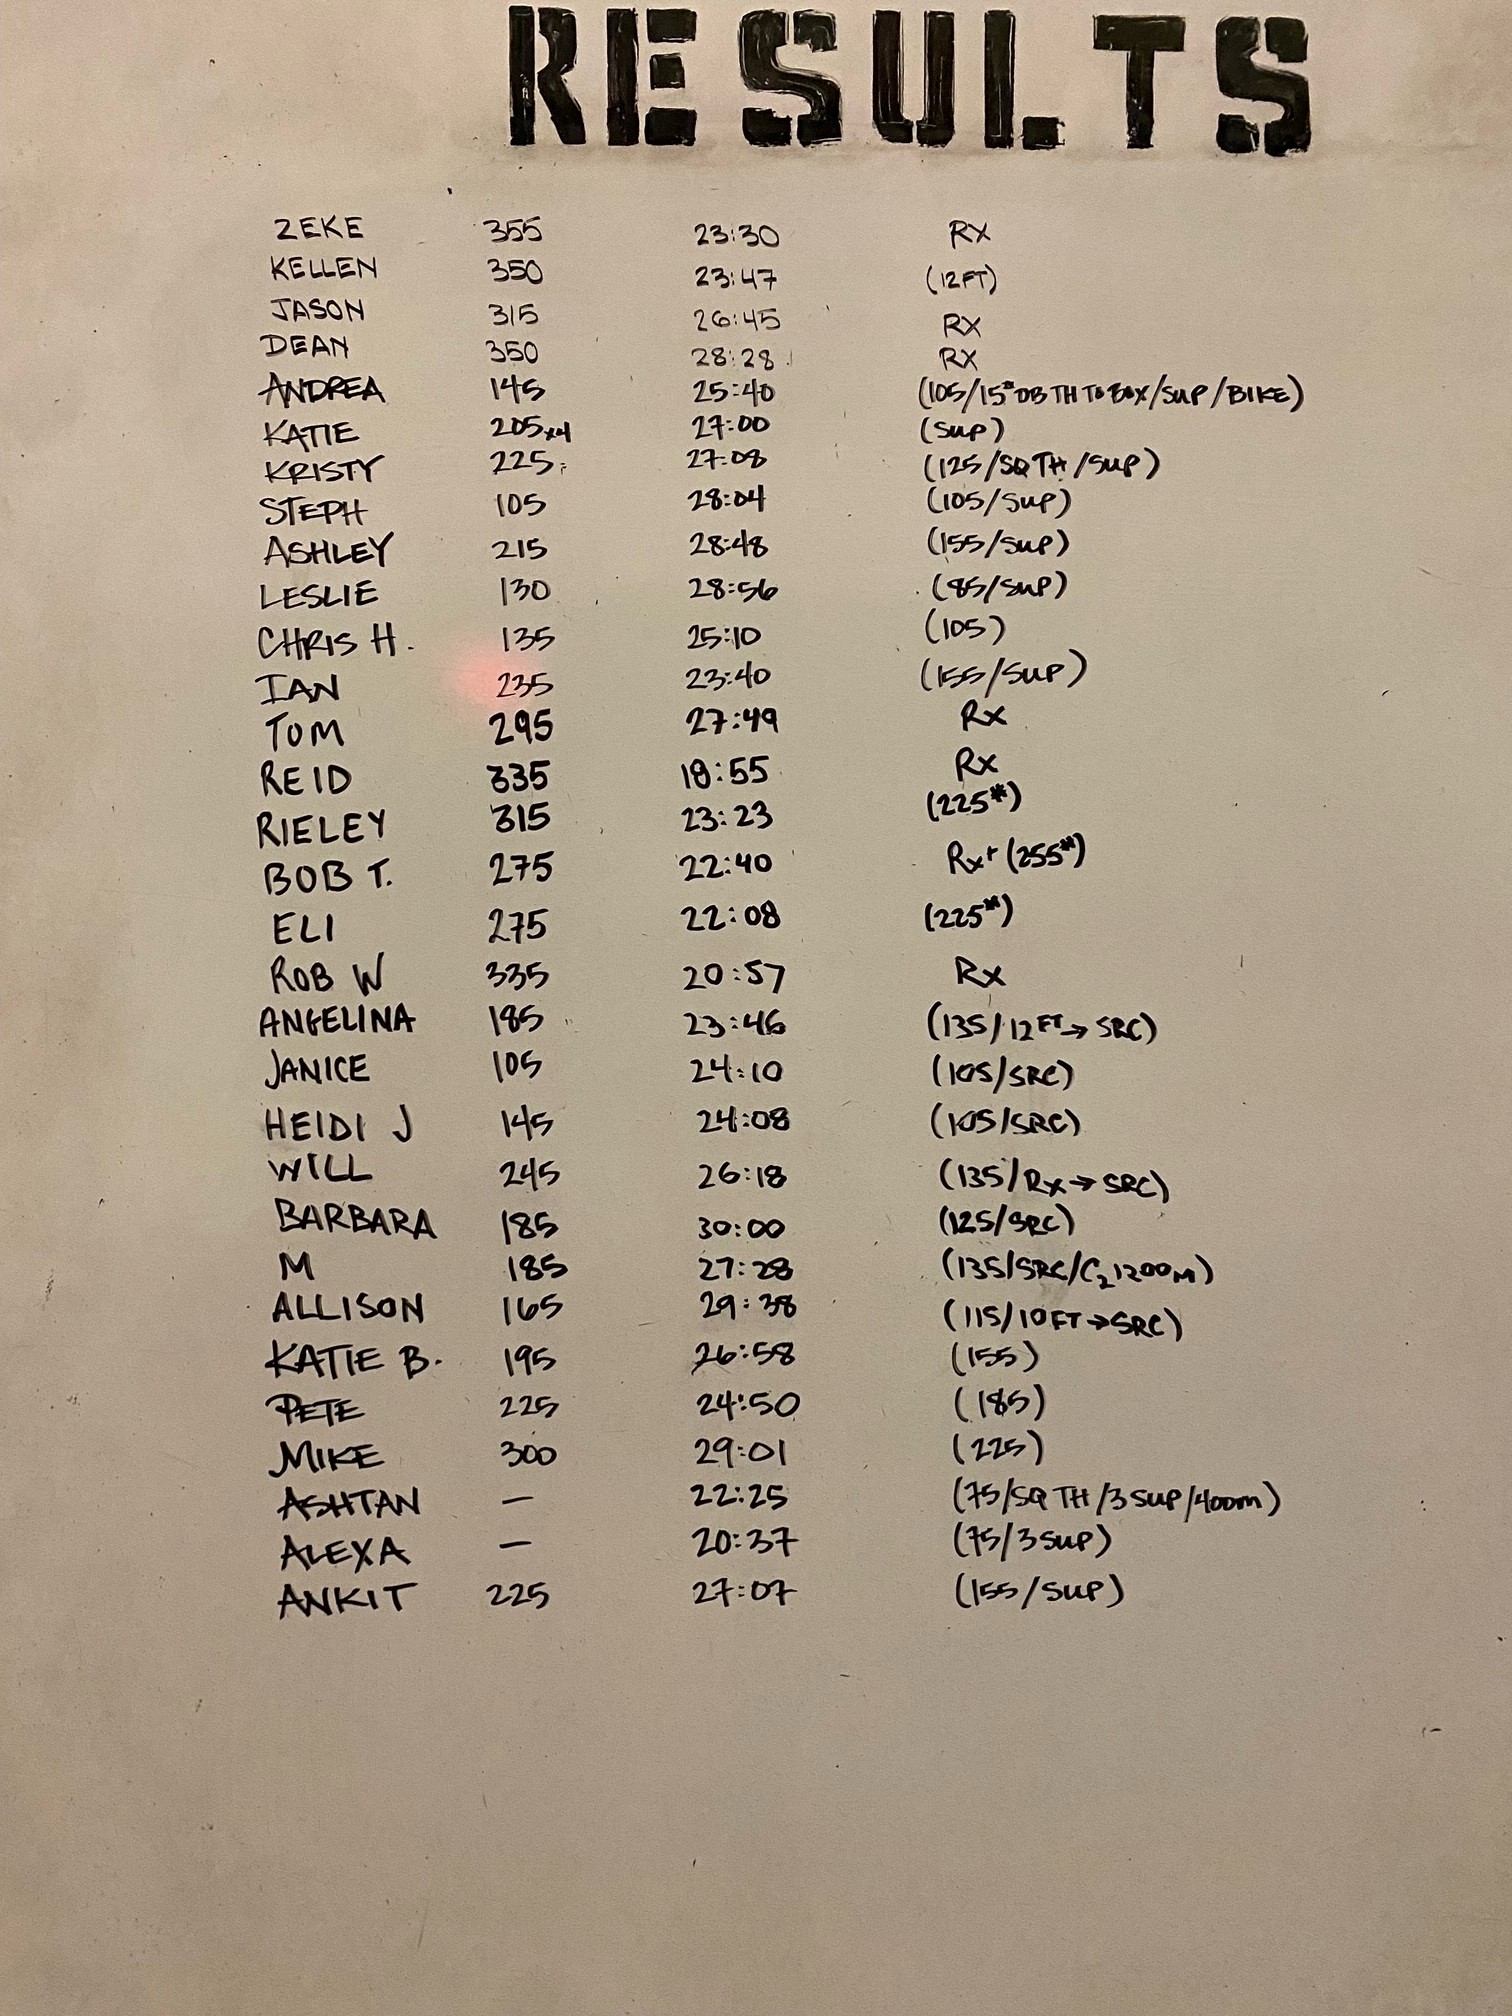 RESULTS
ZEKE 355 23:30 RX
KELLEN 350 23:47 (12FT)
JASON 315 26:45 RX
DEAN 350 28:28 RX
ANDREA 145 25:40 (105/15# DB TH TO BOX/SUP/BIKE)
KATIE 205x4 27:00 (SUP)
KRISTY 225 27:08 (125/SQ TH/SUP)
STEPH 105 28:04 (105/SUP)
ASHLEY 215 28:48 (155/SUP)
LESLIE 130 28:56 (85/SUP)
CHRIS H. 135 25:10 (105)
IAN 235 23:40 (155/SUP)
TOM 295 27:49 Rx
REID 335 18:55 Rx
RIELEY 315 23:23 (225#)
BOB T. 275 22:40 Rx+ (255#)
ELI 275 22:08 (225#)
ROB W 335 20:57 Rx
ANGELINA 185 23:46 (135/12FT→SRC)
JANICE 105 24:10 (105/SRC)
HEIDI J 145 24:08 (105/SRC)
WILL 245 26:18 (135/Rx→SRC)
BARBARA 185 30:00 (125/SRC)
M 185 27:28 (135/SRC/C2 1200M)
ALLISON 165 29:38 (115/10FT→SRC)
KATIE B. 195 26:58 (155)
PETE 225 24:50 (185)
MIKE 300 29:01 (225)
ASHTAN — 22:25 (75/SQ TH/3 SUP/400m)
ALEXA — 20:37 (75/3 SUP)
ANKIT 225 27:07 (155/SUP)